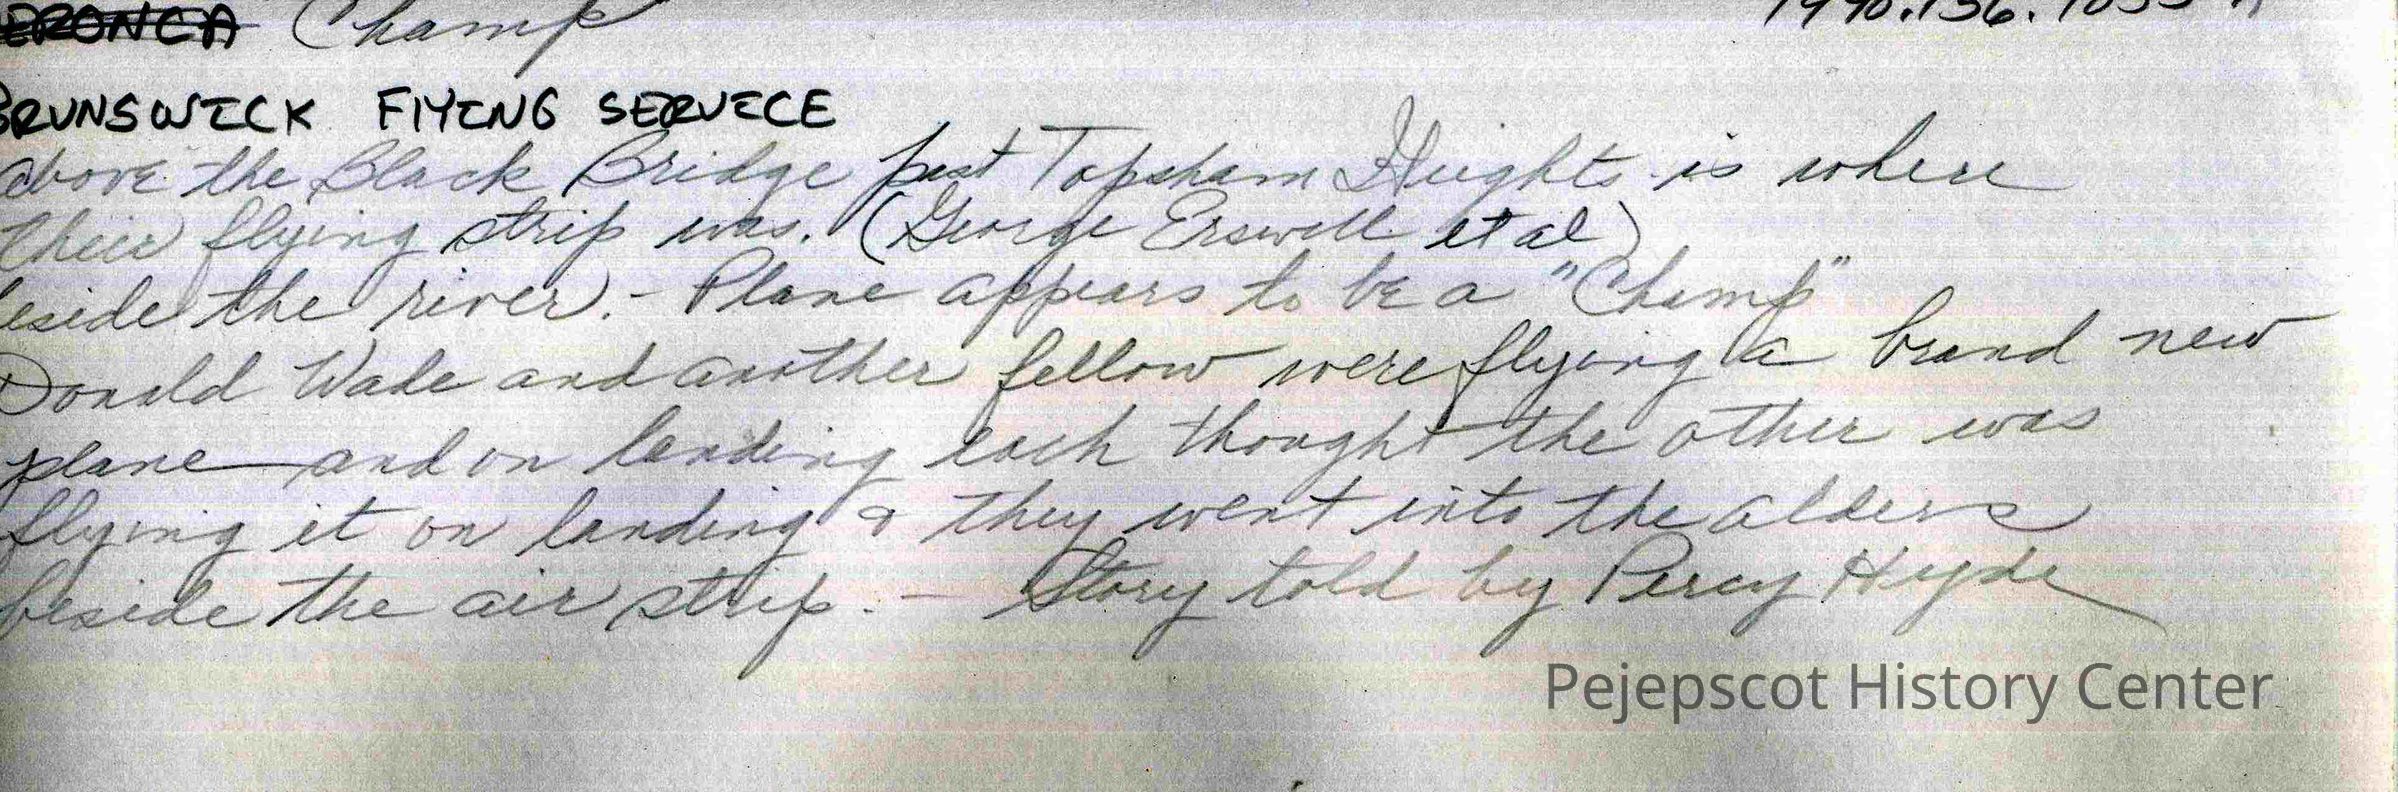 ERONCA Champ
BRUNSWICK FLYING SERVICE
above the Black Bridge past Topsham Heights is where
their flying strip was. (George Erswell et al)
beside the river. - Plane appears to be a "Champ"
Donald Wade and another fellow were flying a brand new
plane and on landing each thought the other was
flying it on landing & they went into the alders
beside the air strip. - Story told by Percy Hyde
Pejepscot History Center